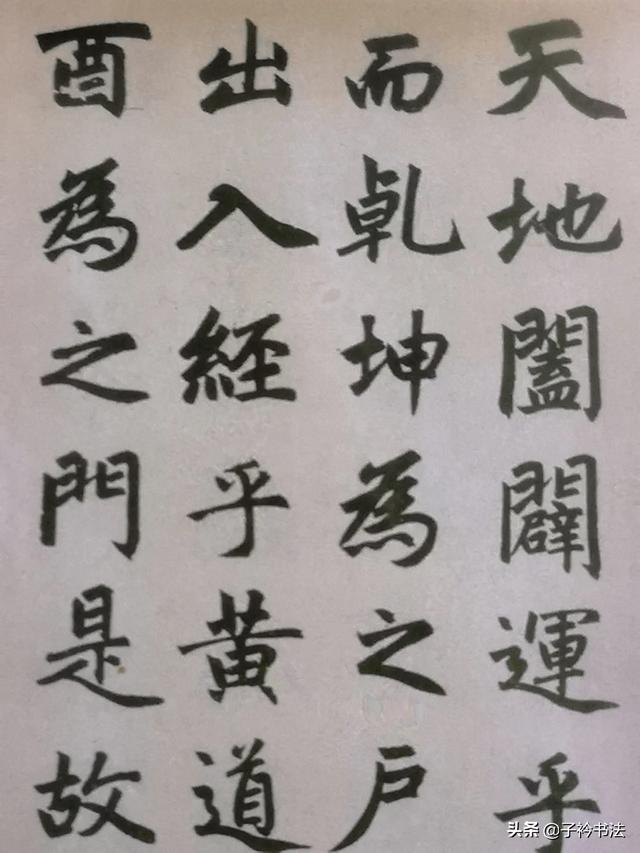 天地闔闢運乎
而乹坤為之戶
出入經乎黃道
酉為之門是故
头条 @子衿书法